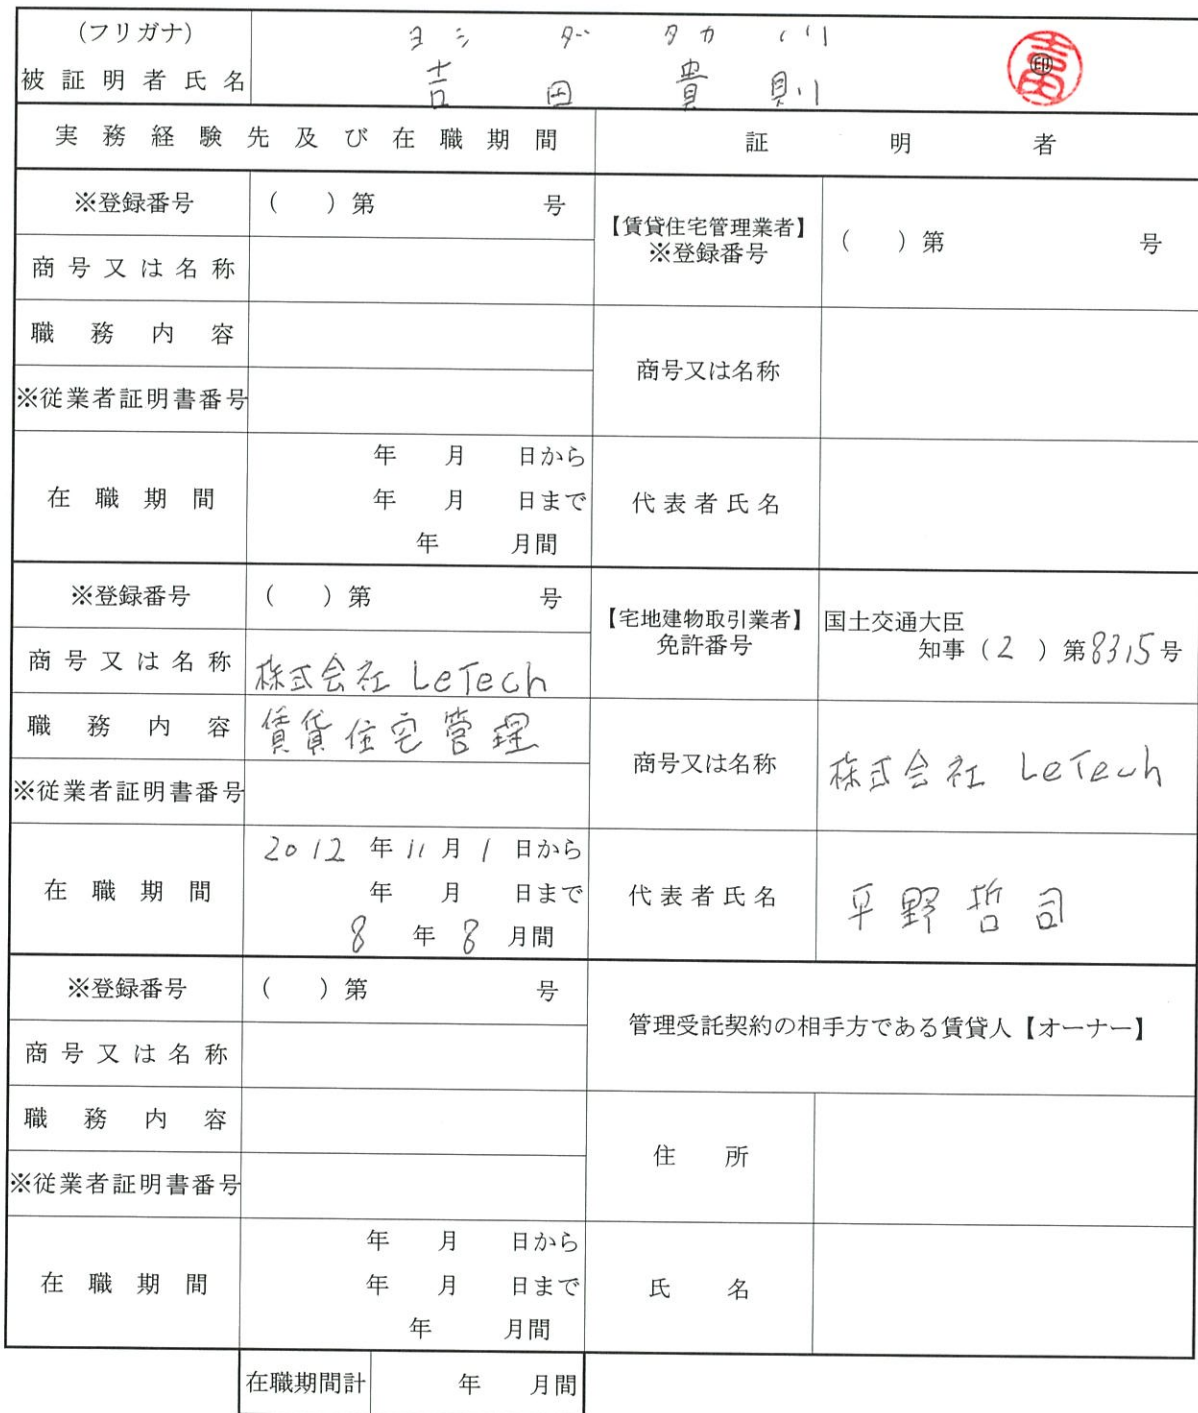 (フリガナ) ヨシ ダ タカ ノリ
被証明者氏名 吉田 貴則 印
実務経験先及び在職期間 証明者
※登録番号 ( )第 号
商号又は名称
職務内容
※従業者証明書番号
在職期間 年 月 日から
年 月 日まで
年 月間
【賃貸住宅管理業者】
※登録番号 ( )第 号
商号又は名称
代表者氏名
※登録番号 ( )第 号
商号又は名称 株式会社 LeTech
職務内容 賃貸住宅管理
※従業者証明書番号
在職期間 2012年11月1日から
年 月 日まで
8年8月間
【宅地建物取引業者】 国土交通大臣
免許番号 知事(2)第8315号
商号又は名称 株式会社 LeTech
代表者氏名 平野哲司
※登録番号 ( )第 号
商号又は名称
職務内容
※従業者証明書番号
在職期間 年 月 日から
年 月 日まで
年 月間
管理受託契約の相手方である賃貸人【オーナー】
住所
氏名
在職期間計 年 月間